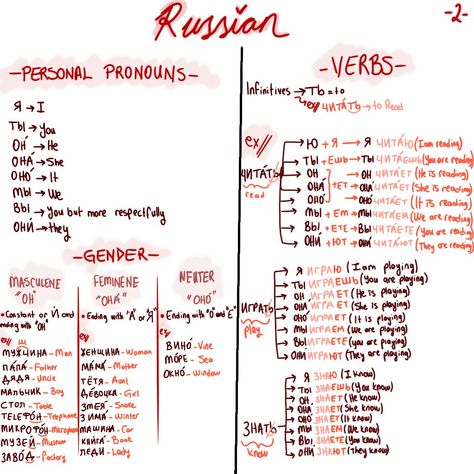 Russian
-2-
-PERSONAL PRONOUNS-
Я → I
ТЫ → You
ОН → He
ОНА́ → She
ОНО́ → It
МЫ → We
ВЫ → You but more respecfully
ОНИ́ → they
-GENDER-
MASCULENE
"ОН"
• Constant or Й and
ending with "ОЙ"
ex//
МУЖЧИ́НА - Man
ПА́ПА - Father
ДЯ́ДЯ - Uncle
МА́ЛЬЧИК - Boy
СТОЛ - Table
ТЕЛЕФО́Н - Telephone
МИКРОФО́Н - Microphone
МУЗЕ́Й - Museum
ЗАВО́Д - Factory
FEMINENE
"ОНА́"
• Ending with "А" or "Я"
ex//
ЖЕ́НЩИНА - Woman
МА́МА - Mother
ТЁТЯ - Aunt
ДЕ́ВОЧКА - Girl
ЗМЕЯ́ - Snake
ЗИМА́ - Winter
МАШИ́НА - Car
КНИ́ГА - Book
ЛЕ́ДИ - Lady
NEUTER
"ОНО́"
• Ending with "О" and "Е"
ex//
ВИНО́ - Vine
МО́РЕ - Sea
ОКНО́ - Window
-VERBS-
Infinitives → ТЬ = to
ex// ЧИТА́ТЬ → to Read
ex//
ЧИТА́ТЬ
read
Ю + Я → Я ЧИТА́Ю (I am reading)
ТЫ + ЕШЬ → ТЫ ЧИТА́ЕШЬ (You are reading)
ОН → ОН ЧИТА́ЕТ (He is reading)
ОНА́ + ЕТ → ОНА́ ЧИТА́ЕТ (She is reading)
ОНО́ → ОНО́ ЧИТА́ЕТ (It is reading)
МЫ + ЕМ → МЫ ЧИТА́ЕМ (We are reading)
ВЫ + ЕТЕ → ВЫ ЧИТА́ЕТЕ (You are reading)
ОНИ́ + ЮТ → ОНИ́ ЧИТА́ЮТ (They are reading)
ИГРА́ТЬ
play
Я ИГРА́Ю (I am playing)
ТЫ ИГРА́ЕШЬ (You are playing)
ОН ИГРА́ЕТ (He is playing)
ОНА́ ИГРА́ЕТ (She is playing)
ОНО́ ИГРА́ЕТ (It is playing)
МЫ ИГРА́ЕМ (We are playing)
ВЫ ИГРА́ЕТЕ (You are playing)
ОНИ́ ИГРА́ЮТ (They are playing)
ЗНАТЬ
know
Я ЗНА́Ю (I know)
ТЫ ЗНА́ЕШЬ (You know)
ОН ЗНА́ЕТ (He knows)
ОНА́ ЗНА́ЕТ (She knows)
ОНО́ ЗНА́ЕТ (It knows)
МЫ ЗНА́ЕМ (We know)
ВЫ ЗНА́ЕТЕ (You know)
ОНИ́ ЗНА́ЮТ (They know)